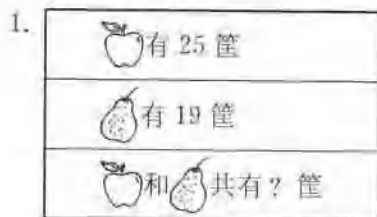 1.
有 25 筐
有 19 筐
和 共有? 筐